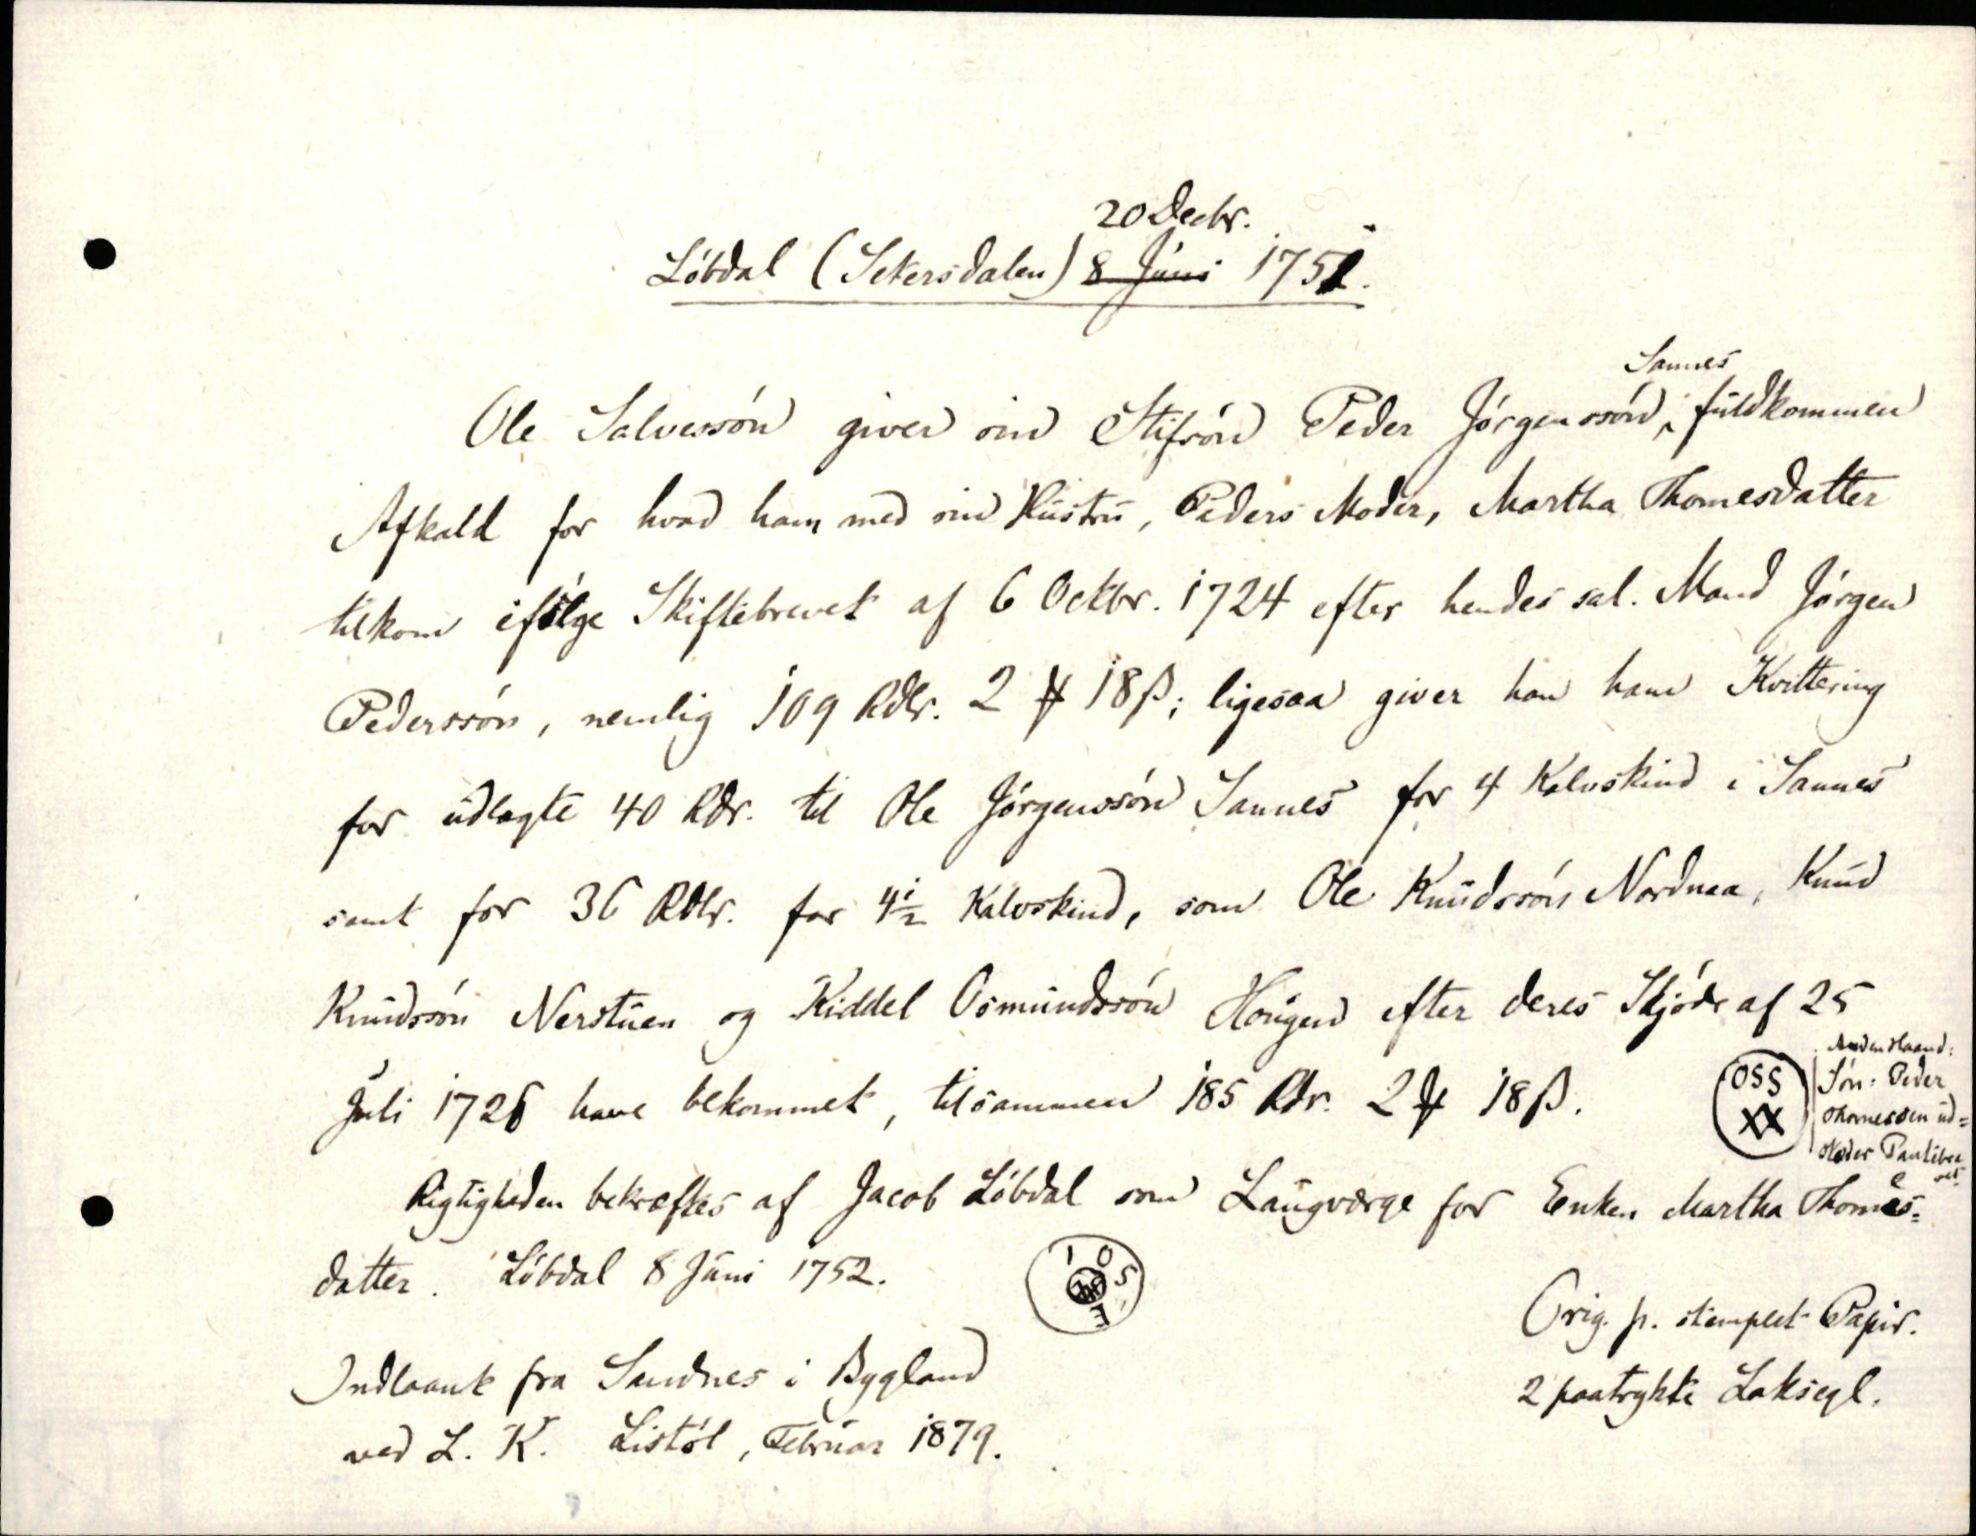 20 Decbr.
Löbdal (Setersdalen) 8 Juni 1751.
Sannes
Ole Salvessön giver sin Stifsön Peder Jörgenssön, fuldkommen
Afkald for hvad ham med sin Hustru, Peders Moder, Martha Thomesdatter
tilkom ifölge Skiftebrevet af 6 Octbr. 1724 efter hendes sal. Mand Jörgen
Pederssön, nemlig 109 Rdlr. 2 ₰ 18 β; ligesaa giver han ham Kvittering
for udlagte 40 Rdr. til Ole Jörgenssön Sannes for 4 Kalvskind i Sannes
samt for 36 Rdlr. for 4½ Kalvskind, som Ole Knudssön Nordnaa, Knud
Knudssön Nerstuen og Kiddel Osmundssön Hougen efter deres Skjöde af 25
Juli 1726 have bekommet, tilsammen 185 Rdr. 2 ₰ 18 β.
OSS
XX
Anden Haand:
Sön: Peder
Thomessen ud=
Rigtigheden bekræftes af Jacob Löbdal som Laugværge for Enken Martha Thomes=
datter. Löbdal 8 Juni 1752.
I O S
L
Orig. p. stemplet Papir.
2 paatrykte Laksegl.
Indlaant fra Sandnes i Bygland
ved L. K. Listöl, Februar 1879.